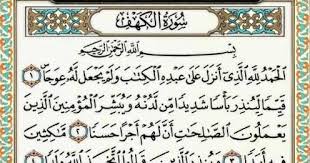 سُورَةُ الْكَهْفِ
بِسْمِ ٱللَّهِ ٱلرَّحْمَٰنِ ٱلرَّحِيمِ
ٱلْحَمْدُ لِلَّهِ ٱلَّذِىٓ أَنزَلَ عَلَىٰ عَبْدِهِ ٱلْكِتَٰبَ وَلَمْ يَجْعَل لَّهُۥ عِوَجَا ۜ ١
قَيِّمًا لِّيُنذِرَ بَأْسًا شَدِيدًا مِّن لَّدُنْهُ وَيُبَشِّرَ ٱلْمُؤْمِنِينَ ٱلَّذِينَ
يَعْمَلُونَ ٱلصَّٰلِحَٰتِ أَنَّ لَهُمْ أَجْرًا حَسَنًا ٢ مَّٰكِثِينَ